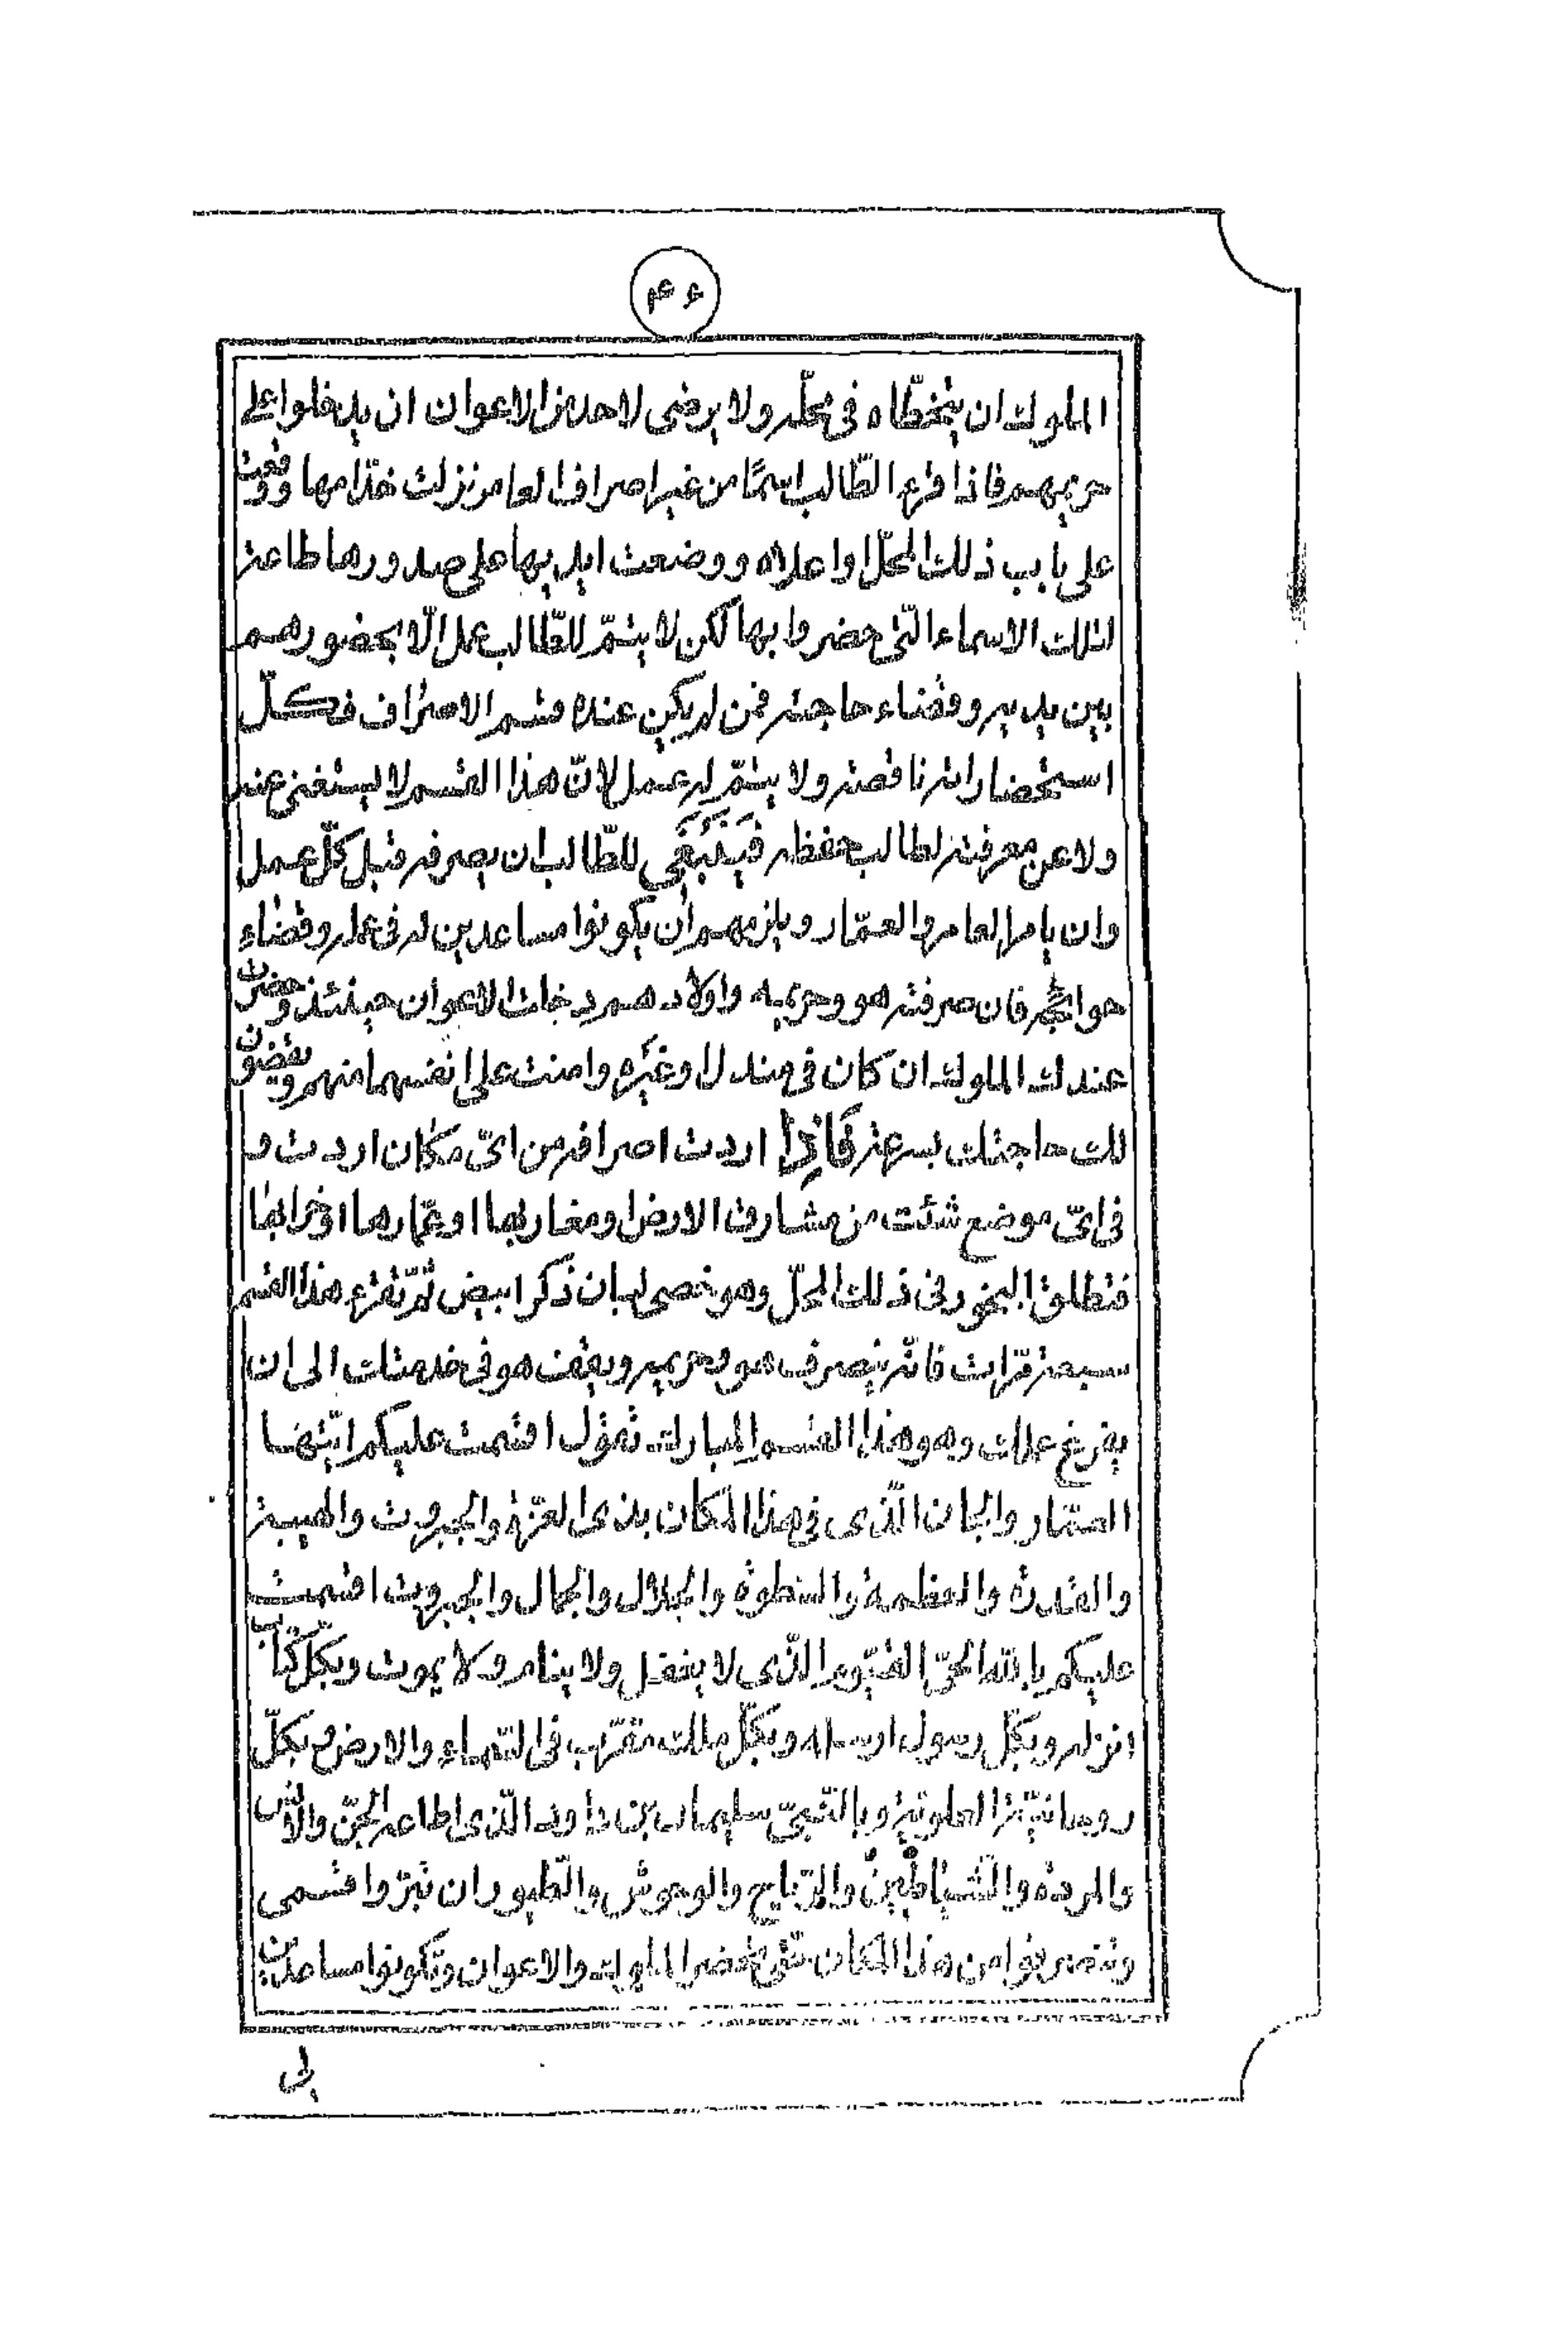 ۴۶
الملوك ان يتخطّاه فى محلّه ولا يرضى لاحد من الاعوان ان يدخلوا على
حريمهم فاذا قرء الطّالب اسمًا من غير اصراف العامر نزلت خدّامها ووقفت
على باب ذلك المحلّ او اعلاه ووضعت ايديها على صدورها طاعة
لتلك الاسماء الّتى حضروا بها لكن لا يتمّ للطّالب عمل الّا بحضورهم
بين يديه وقضاء حاجته فمن لم يكن عنده قسم الاصراف فكلّ
استحضاراته ناقصة ولا يتمّ له عمل لانّ هذا القسم لا يستغنى عنه
ولا عن معرفته لطالب حفظه فَيَنْبَغِى للطّالب ان يصرفه قبل كلّ عمل
وان يامر العامر والعمّار ويلزمهم ان يكونوا مساعدين له فى عمله وقضاء
حوائجه فان صرفته هو وحريمه واولادهم دخلت الاعوان حينئذ وحضرت
عندك الملوك ان كان فى مندل او غيره وامنت على انفسهما منهم ويقضون
لك حاجتك بسرعة فَاذِا اردت اصرافه من اىّ مكان اردت و
فى اىّ موضع شئت من مشارق الارض ومغاربها او عمّارها او خرابها
فتطلق البخور فى ذلك المحلّ وهو خصى لبان ذكر ابيض ثمّ تقرء هذا القسم
سبعة مرّات فانّه ينصرف هو وحريمه ويقف هو فى خدمتك الى ان
يفرغ عملك وهو هذا القسم المبارك تقول اقسمت عليكم ايّتها
العمّار والجان الّذى فى هذا المكان بذى العزّة والجبروت والهيبة
والقدرة والعظمة والسّطوة والجلال والجمال والجبروت اقسمت
عليكم بالله الحىّ القيّوم الّذى لا يغفل ولا ينام ولا يموت وبكلّ كتاب
انزله وبكلّ رسول ارسله وبكلّ ملك مقرّب فى السّماء والارض وبكلّ
روحانيّة العلويّة وبالنّبىّ سليمان بن داود الّذى اطاعه الجنّ والانس
والمردة والشّياطين والرّياح والوحوش والطّيور ان تبرّوا قسمى
وتنصرفوا من هذا المكان حتّى تحضر الملوك والاعوان وتكونوا مساعدين
لى